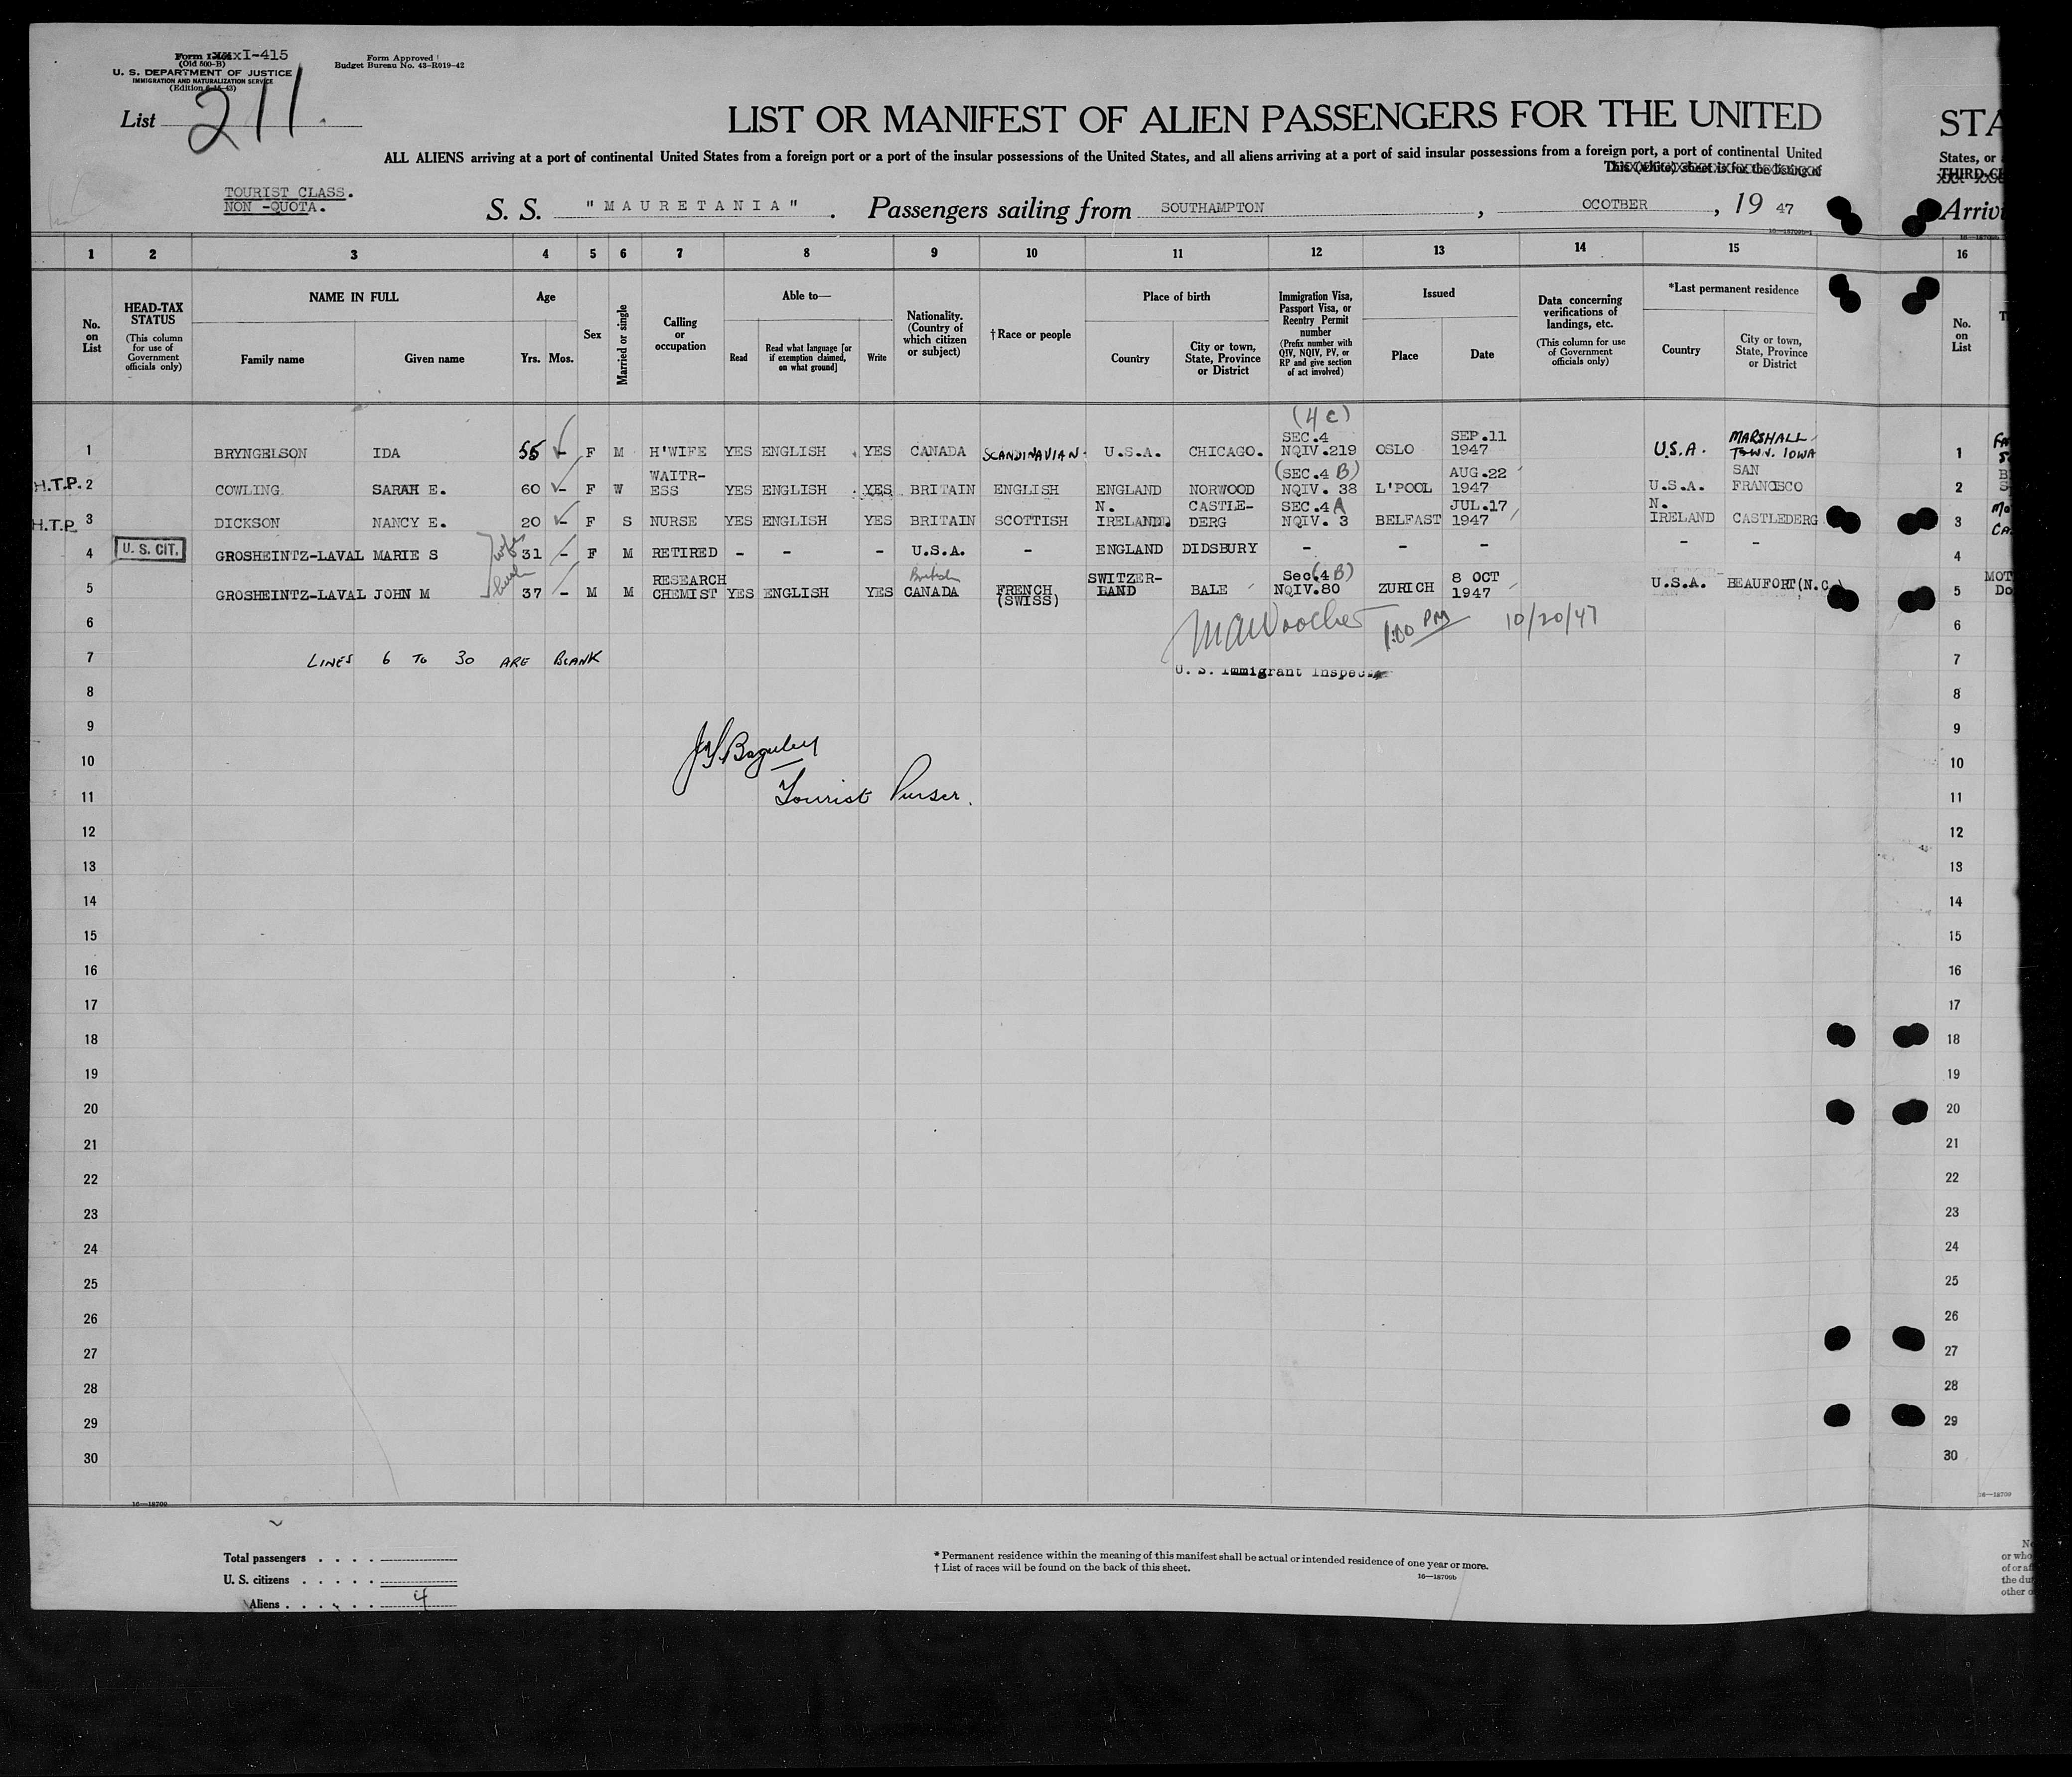 Form I-415
(Old 500-B)
U. S. DEPARTMENT OF JUSTICE
IMMIGRATION AND NATURALIZATION SERVICE
Form Approved
Budget Bureau No. 43-R019-42
List 211.
LIST OR MANIFEST OF ALIEN PASSENGERS FOR THE UNITED
STA
ALL ALIENS arriving at a port of continental United States from a foreign port or a port of the insular possessions of the United States, and all aliens arriving at a port of said insular possessions from a foreign port, a port of continental United
States, or
This (white) sheet is for the listing of
THIRD-CL
TOURIST CLASS.
NON -QUOTA.
S. S. "MAURETANIA". Passengers sailing from SOUTHAMPTON, OCOTBER, 19 47
Arrivi
1 2 3 4 5 6 7 8 9 10 11 12 13 14 15 16
No. on List
HEAD-TAX STATUS
(This column for use of Government officials only)
NAME IN FULL
Family name Given name
Age
Yrs. Mos.
Sex
Married or single
Calling or occupation
Able to—
Read
Read what language [or if exemption claimed, on what ground]
Write
Nationality. (Country of which citizen or subject)
†Race or people
Place of birth
Country
City or town, State, Province or District
Immigration Visa, Passport Visa, or Reentry Permit number
(Prefix number with QIV, NQIV, PV, or RP and give section of act involved)
Issued
Place Date
Data concerning verifications of landings, etc.
(This column for use of Government officials only)
*Last permanent residence
Country
City or town, State, Province or District
No. on List
1 BRYNGELSON IDA 55 - F M H'WIFE YES ENGLISH YES CANADA SCANDINAVIAN U.S.A. CHICAGO. (4 c) SEC.4 NQIV.219 OSLO SEP.11 1947 U.S.A. MARSHALL TOWN. IOWA 1
H.T.P. 2 COWLING SARAH E. 60 - F W WAITR-ESS YES ENGLISH YES BRITAIN ENGLISH ENGLAND NORWOOD (SEC.4 B) NQIV. 38 L'POOL AUG.22 1947 U.S.A. SAN FRANCISCO 2
H.T.P 3 DICKSON NANCY E. 20 - F S NURSE YES ENGLISH YES BRITAIN SCOTTISH N. IRELAND. CASTLE-DERG SEC.4 A NQIV. 3 BELFAST JUL.17 1947 N. IRELAND CASTLEDERG 3
4 U. S. CIT. GROSHEINTZ-LAVAL MARIE S wife 31 - F M RETIRED - - - U.S.A. - ENGLAND DIDSBURY - - - - - 4
5 GROSHEINTZ-LAVAL JOHN M 37 - M M RESEARCH CHEMIST YES ENGLISH YES British CANADA FRENCH (SWISS) SWITZER-LAND BALE Sec(4 B) NQIV.80 ZURICH 8 OCT 1947 U.S.A. BEAUFORT(N.C.) 5
6 1:00 PM 10/20/47 6
7 LINES 6 TO 30 ARE BLANK U. S. Immigrant Inspector 7
8 8
9 9
10 Baguley 10
11 Tourist Purser. 11
12 12
13 13
14 14
15 15
16 16
17 17
18 18
19 19
20 20
21 21
22 22
23 23
24 24
25 25
26 26
27 27
28 28
29 29
30 30
16—18709
16—18709
Total passengers
U. S. citizens
Aliens 4
* Permanent residence within the meaning of this manifest shall be actual or intended residence of one year or more.
† List of races will be found on the back of this sheet.
16—18709b
or who
of or af
the du
other o